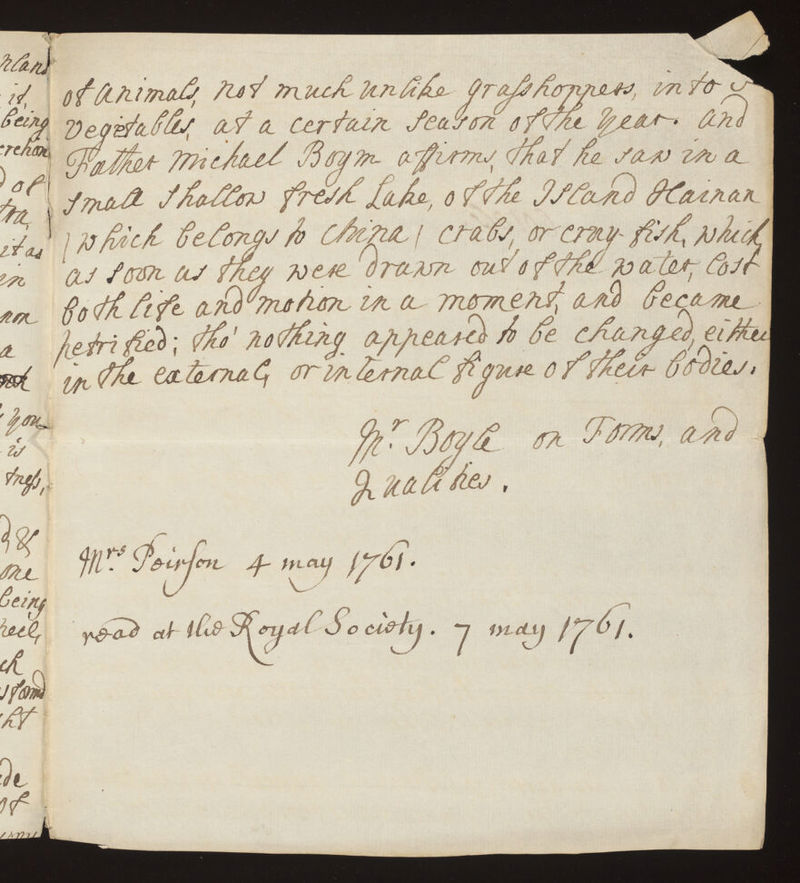 of animals, not much unlike grasshoppers, into
vegetables, at a certain season of the year. and
Father Michael Boym affirms, that he saw in a
small shallow fresh Lake, of the Island Hainan
(which belongs to China) crabs, or cray-fish, which
as soon as they were drawn out of the water, lost
both life and motion in a moment, and became
petrified; tho' nothing appeared to be changed, either
in the external, or internal figure of their bodies.
Mr. Boyle on Forms, and
Qualities.
Mrs. Peirson 4 may 1761.
read at the Royal Society. 7 may 1761.